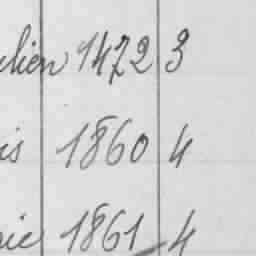 lien 1872 3
is 1860 4
ie 1861 4